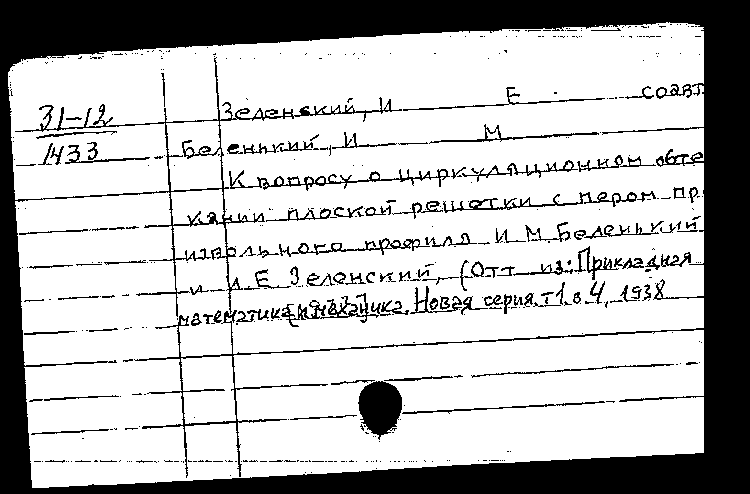 31-12
1433
Зеленский, И Е соавт
Беленький, И М
К вопросу о циркуляционном обте
кании плоской решетки с пером пр
извольного профиля И М Беленький
и И Е Зеленский, (Отт из: Прикладная
математика и механика, Новая серия, т 1. в. 4, 1938